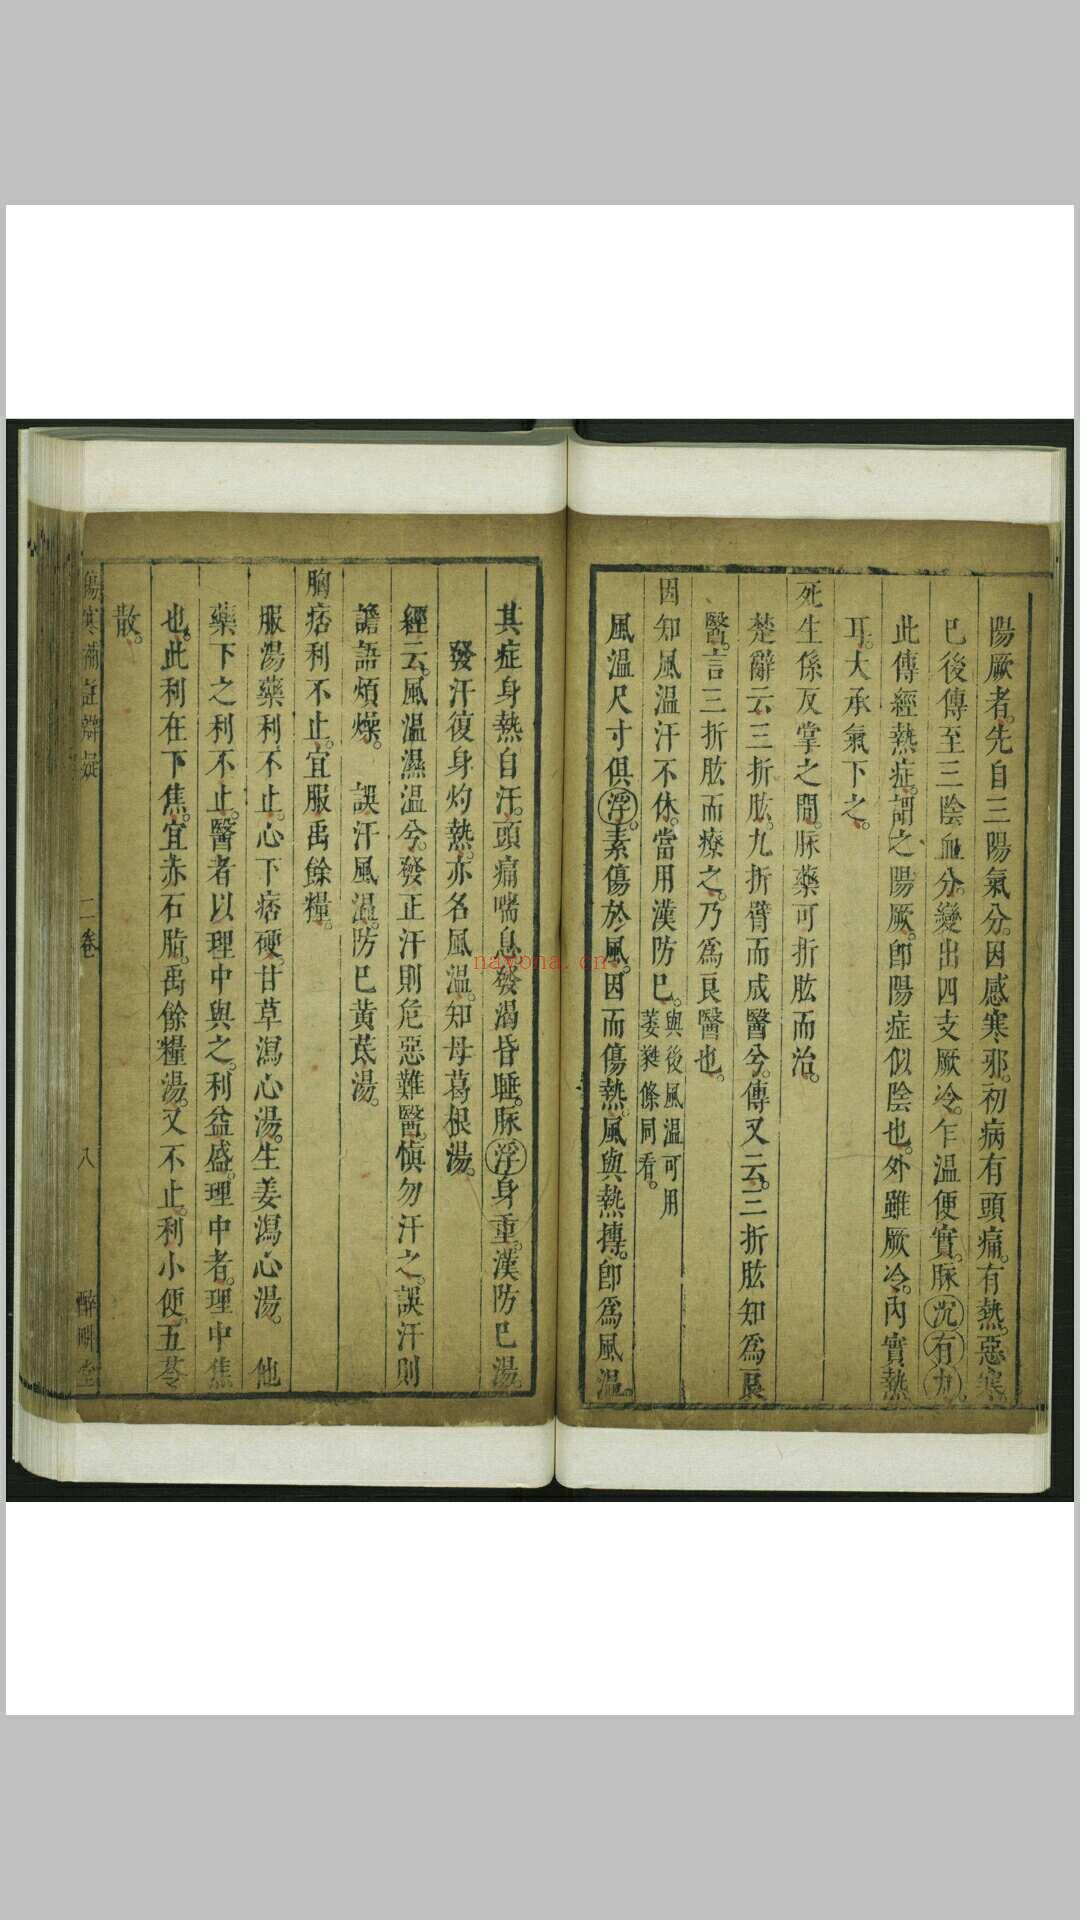 陽厥者。先自三陽氣分。因感寒邪。初病有頭痛。有熱。惡寒
巳後傳至三陰血分。變出四支厥冷。乍溫便實。脉沉有力。
此傳經熱症。謂之陽厥。卽陽症似陰也。外雖厥冷。內實熱
耳。大承氣下之。
死生係反掌之間。脉藥可折肱而治。
楚辭云三折肱。九折臂而成醫兮。傳又云。三折肱知爲良
醫。言三折肱而療之。乃爲良醫也。
因知風溫汗不休。當用漢防巳。與後風溫可用
萎蕤條同看。
風溫尺寸俱浮。素傷於風。因而傷熱。風與熱搏。卽爲風溫。
其症身熱自汗。頭痛喘息。發渴昏睡。脉浮。身重。漢防巳湯。
發汗復身灼熱。亦名風溫。知母葛根湯。
經云。風溫濕溫兮。發正汗則危惡難醫。愼勿汗之。誤汗則
譫語煩燥。 誤汗風溫。防巳黃茋湯。
胸痞利不止。宜服禹餘糧。
服湯藥利不止。心下痞硬。甘草瀉心湯。生姜瀉心湯。 他
藥下之利不止。醫者以理中與之。利益盛。理中者。理中焦
也。此利在下焦。宜赤石脂。禹餘糧湯。又不止。利小便。五苓
散。
傷寒補註辯疑 二卷 八 醉畊堂
nayona.cn